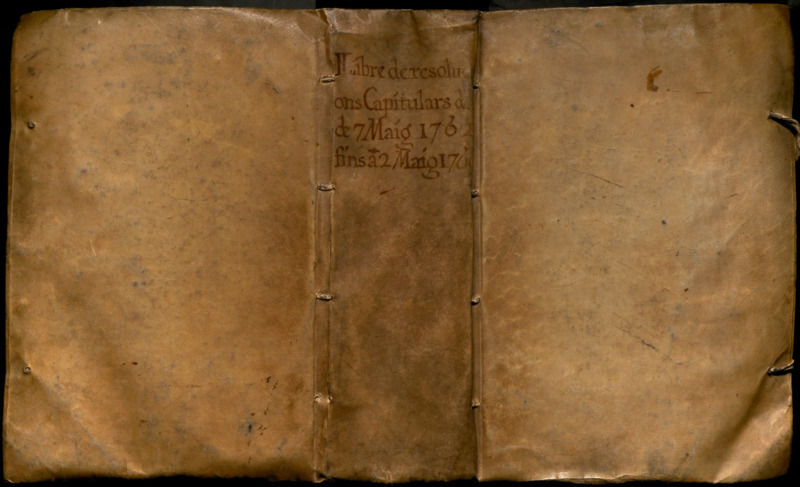 Llibre de resolu
ons Capitulars d
de 7 Maig 1762
fins a 2 Maig 176